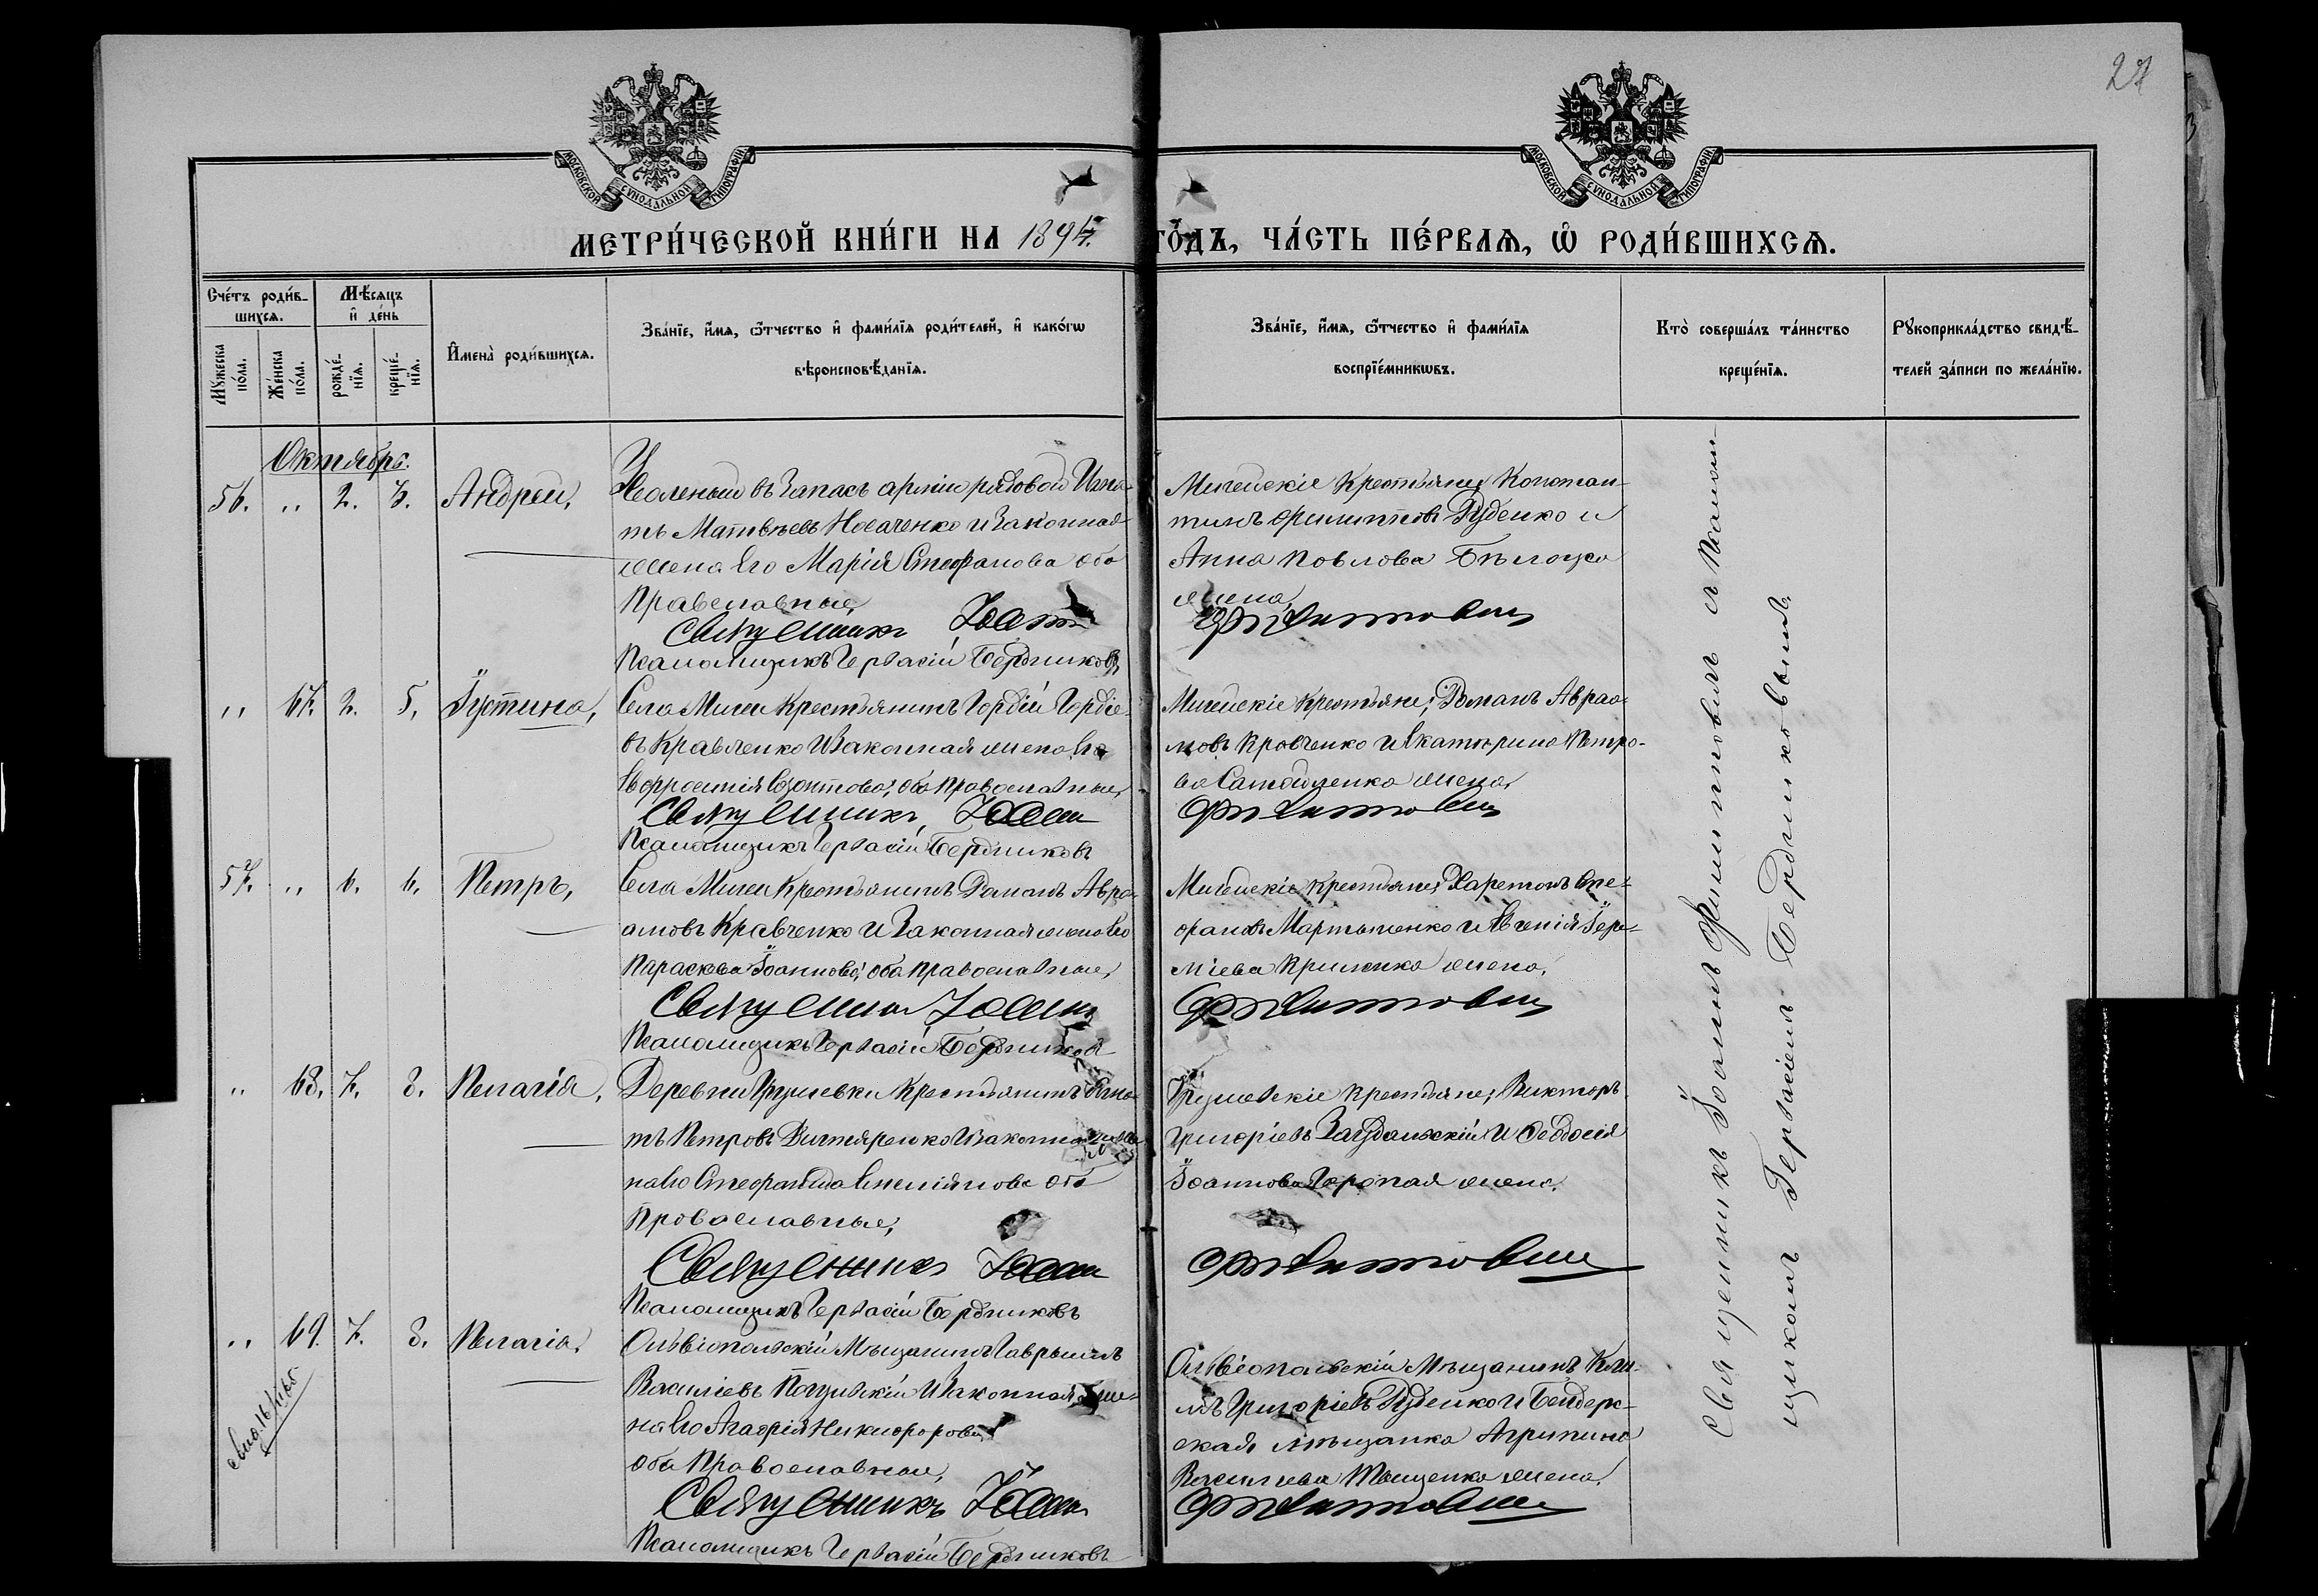 27
МОСКОВСКОЙ СѴНОДАЛЬНОЙ ТИПОГРАФІИ
МОСКОВСКОЙ СѴНОДАЛЬНОЙ ТИПОГРАФІИ
МЕТРИ́ЧЕСКОЙ КНИ́ГИ НА 1894.
ГО́ДЪ, ЧА́СТЬ ПЕ́РВАѦ, Ѡ҆ РОДИ́ВШИХСѦ.
Сче́тъ роди́в-
шихсѧ.
Мꙋ́жеска
по́ла.
Же́нска
по́ла.
Мѣ́сѧцъ
и҆ де́нь
рожде́-
нїѧ.
креще́-
нїѧ.
И҆мена̀ роди́вшихсѧ.
Зва́нїе, и҆́мѧ, ѻ҆́тчество и҆ фами́лїѧ роди́телей, и҆ како́гѡ
вѣроисповѣ́данїѧ.
Зва́нїе, и҆́мѧ, ѻ҆́тчество и҆ фами́лїѧ
воспрїе́мникѡвъ.
Кто̀ соверша́лъ та́инство
креще́нїѧ.
Рꙋкоприкла́дство свидѣ́-
телей за́писи по жела́нїю.
Октябрь.
56. „ 2. 3. Андрей,
Уволеный въ Запасъ арміи рядовой Игна-
тъ Матвѣевъ Носаченко и Законная
жена Его Марія Стефанова оба
Православные,
Священникъ Іоаннъ
Псаломщикъ Гервасій Бердниковъ
Мигейскіе Крестьяне, Констан-
тинъ Филипповъ Руденко и
Анна Павлова Бѣлоуса
жена,
Филипповичъ
„ 67. 2. 5. Іустина,
Села Мигеи Крестьянинъ Гордій Гордіе-
въ Кравченко и Законная жена Его
Евфросинія оба Православные,
Священникъ Іоаннъ
Псаломщикъ Гервасій Бердниковъ
Мигейскіе Крестьяне, Романъ Авраа-
мовъ Кравченко и Екатерина Петро-
ва Самойленка жена,
Филипповичъ
57. „ 6. 6. Петръ,
Села Мигеи Крестьянинъ Романъ Авра-
амовъ Кравченко и Законная жена Его
Параскева Іоаннова, оба Православные,
Священникъ Іоаннъ
Псаломщикъ Гервасій Бердниковъ
Мигейскіе Крестьяне, Харитонъ Сте-
фановъ Мартыненко и Евгенія Іере-
міева жена,
Филипповичъ
„ 68. 7. 8. Пелагія,
Деревни Грушевки Крестьянинъ Игна-
тъ Петровъ Дигтяренко и Законная же-
на Его Стефанида оба
Православные,
Священникъ Іоаннъ
Псаломщикъ Гервасій Бердниковъ
Грушевскіе Крестьяне, Викторъ
Григоріевъ и Феодосія
Іоаннова жена,
Филипповичъ
„ 69. 7. 8. Пелагія,
Ольвіопольскій Мѣщанинъ Гавріилъ
Василіевъ и Законная же-
на Его Агафія Никифорова
оба Православные,
Священникъ Іоаннъ
Псаломщикъ Гервасій Бердниковъ
Ольвіопольскій Мѣщанинъ Кли-
мъ Григоріевъ Руденко и Бендер-
ская мѣщанка Агрипина
Василіева Тищенка жена,
Филипповичъ
Священникъ Іоаннъ Филипповичъ и Псалом-
щикомъ Гервасіемъ Бердниковымъ.